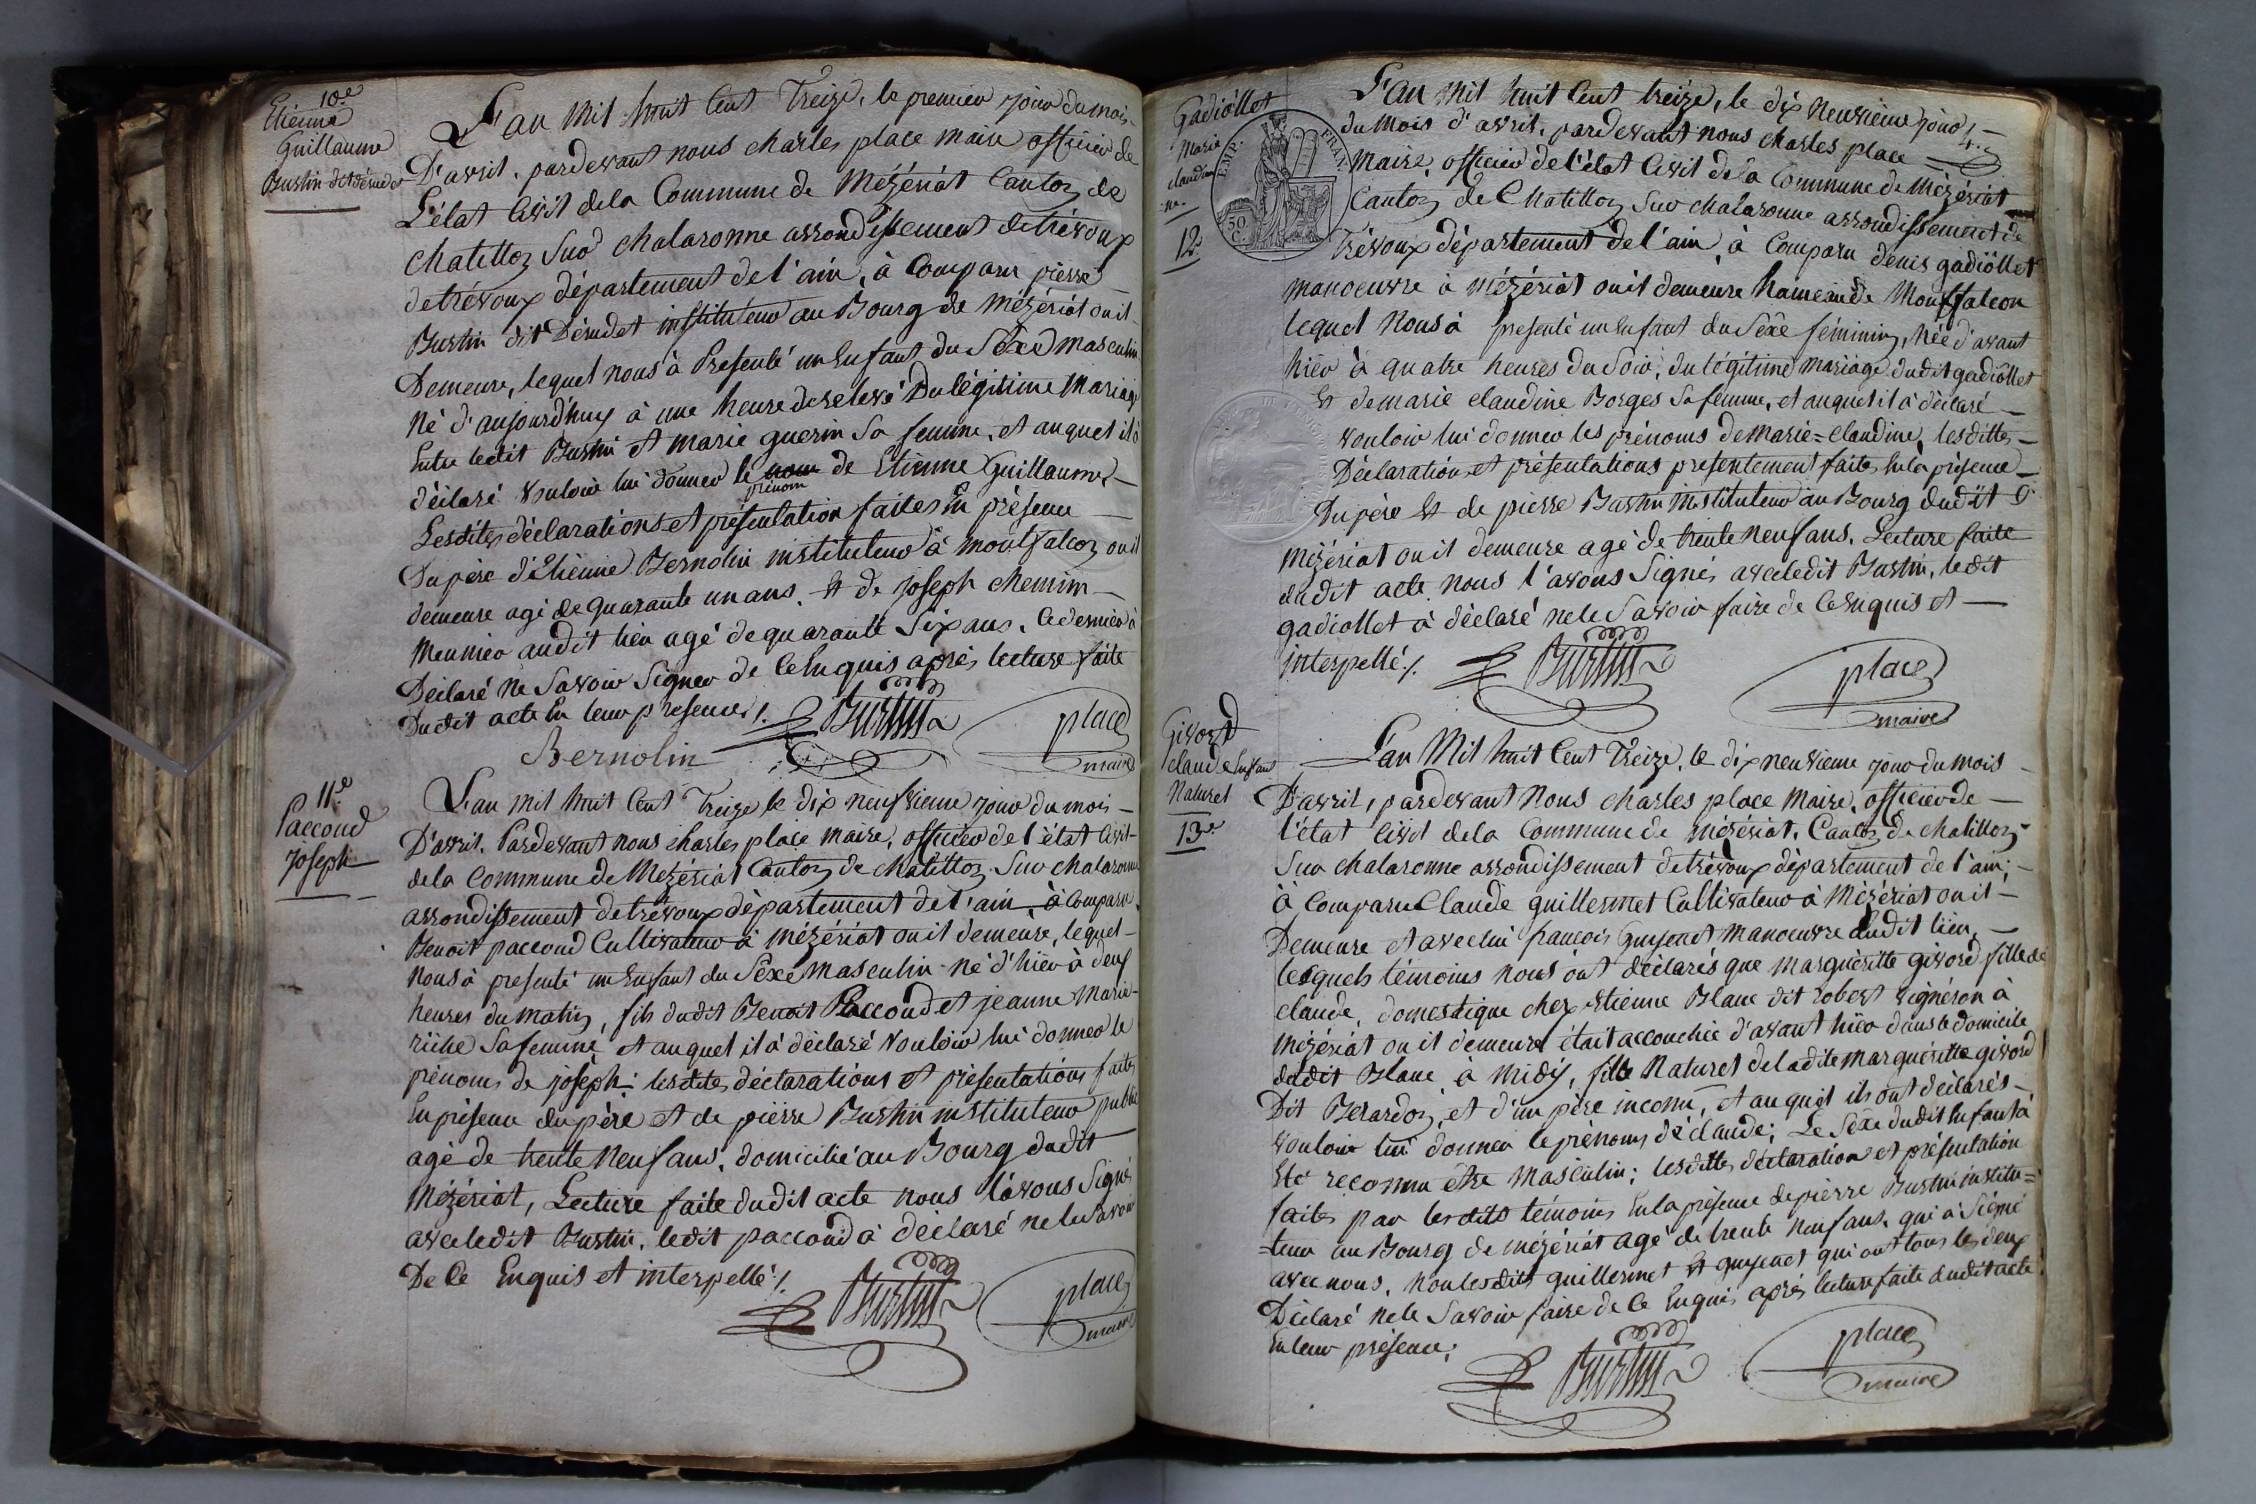 10e
Etienne
Guillaume
Burtin dit dérudet
L'an mil huit Cent Treize, le premier jour du mois
D'avril, pardevant nous charles place maire officier de
L'état Civil de la Commune de Mézériat Canton de
Chatillon Sur chalaronne arrondissement de trévoux
de trévoux département de l'ain, à Comparu pierre
Burtin dit Dérudet instituteur au Bourg de Mézériat ou il
Demeure, lequel nous à Presenté un Enfant du Sèxe masculin
Né d'aujourd'huy à une heure de relevé Du légitime Mariage
Entre ledit Burtin et marie guerin Sa femme, et auquel il à
déclaré vouloir lui donner le nom de Etienne Guillaume
prénom
Lesdites déclarations et présentation faites En présence
Du père d'Etienne Bernolin instituteur à montfalcon ou il
demeure agé de quarante un ans, Et de joseph chemin
Meunier audit lieu agé de quarante Six ans, Ce dernier à
Déclaré Ne Savoir Signer de Ce Enquis après lecture faite
Dudit acte En leur presence ./.
Burtin
place
maire
Bernolin
11e
Paccoud
joseph
L'an mil huit Cent Treize le dix neufvieme jour du mois
D'avril. Pardevant nous charles place maire, officier de l'état Civil
de la Commune de Mézériat Canton de Chatillon Sur chalaronne
arrondissement de trévoux département de l'ain, à Comparu
Benoit paccoud Cultivateur à Mézériat ou il demeure, lequel
nous à presenté un Enfant du Sèxe Masculin né d'hier à deux
heures du matin, fils dudit Benoit Paccoud et jeanne Marie
riche Sa femme et auquel il à déclaré vouloir lui donner le
prénoms de joseph: lesdites déclarations et présentations faites
En présence du père et de pierre Burtin instituteur public
agé de trente Neuf ans, domicilié au Bourg dudit
Mézériat, Lecture faite dudit acte nous l'avons Signé
avec ledit Burtin, ledit paccoud à déclaré ne le Savoir
De Ce Enquis et interpellé ./.
Burtin
place
maire
Gadiollet
Marie
claudine
12e
EMP. FRAN.
50 C.
L'an Mil huit Cent treize, le dix Neuvième jour
du Mois d'avril, pardevant nous charles place
Maire, officier de l'état Civil de la Commune de Mézériat
Canton de Chatillon Sur chalaronne arrondissement de
Trévoux département de l'ain, à Comparu denis gadiollet
manoeuvre à Mézériat ou il demeure hameau de Montfalcon
lequel Nous à presenté un Enfant du Sèxe féminin, Née d'avant
hier à quatre heures du Soir, du légitime mariage dudit gadiollet
Et de marie claudine Borges Sa femme, et auquel il à déclaré
vouloir lui donner les prénoms de Marie=claudine, lesdittes
Déclaration et présentations presentement faites En la présence
Du père Et de pierre Burtin instituteur au Bourg dudit
Mézériat ou il demeure agé de trente Neuf ans. Lecture faite
dudit acte nous l'avons Signés avec ledit Burtin, ledit
gadiollet à déclaré ne le Savoir faire de Ce Enquis et
interpellé ./.
Burtin
place
maire
Givord
claude Enfant
Naturel
13e
L'an Mil huit Cent Treize, le dix neuvieme jour du mois
D'avril, pardevant Nous charles place Maire, officier de
l'état Civil de la Commune de Mézériat, Canton de chatillon
Sur chalaronne arrondissement de trévoux département de l'ain;
à Comparu Claude guillermet Cultivateur à Mézériat ou il
Demeure et avec lui françois Guyenet Manoeuvre dudit lieu,
lesquels témoins nous ont déclarés que marguéritte givord fille de
claude, domestique chez Etienne Blanc dit robert vignéron à
Mézériat ou il demeure était accouchée d'avant hier dans le domicile
dudit Blanc à Midy, fils Naturel de ladite marguéritte givord
Dit Berardon, et d'un père inconnu, et auquel ils ont déclarés
vouloir lui donner le prénoms de claude; Le Sèxe dudit Enfant à
Eté reconnu être Masculin; lesdittes déclaration et présentation
faites par lesdits témoins En la présence de pierre Burtin institu=
=teur au Bourg de mézériat agé de trente Neuf ans, qui à Signé
avec nous, Non lesdits guillermet Et guyenet qui ont tous les deux
Déclaré ne le Savoir faire de Ce Enquis après lecture faite dudit acte
En leur présence;
Burtin
place
maire